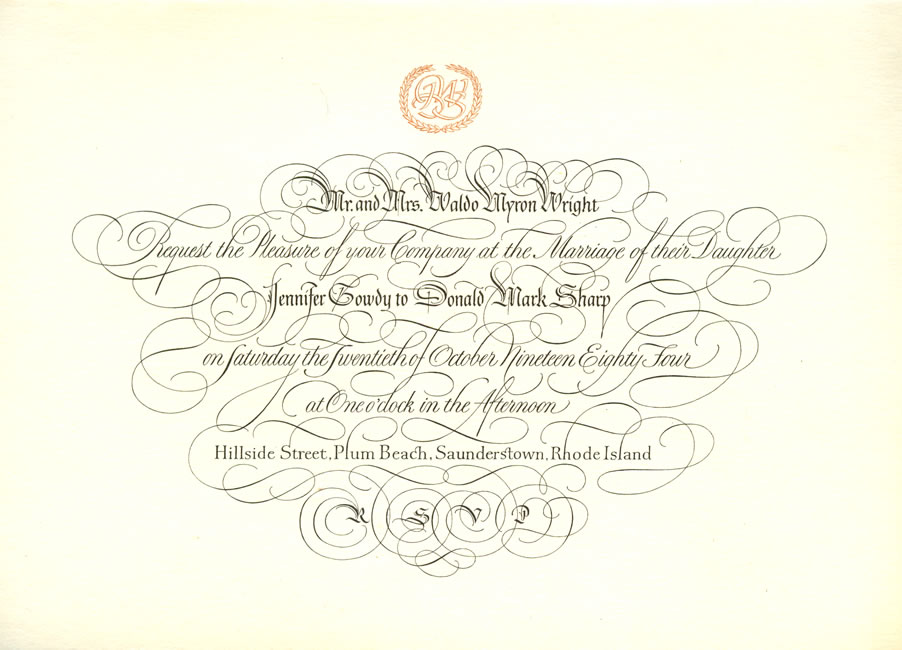 Mr. and Mrs. Waldo Myron Wright
Request the Pleasure of your Company at the Marriage of their Daughter
Jennifer Gowdy to Donald Mark Sharp
on Saturday the Twentieth of October Nineteen Eighty Four
at One o'clock in the Afternoon
Hillside Street, Plum Beach, Saunderstown, Rhode Island
R S V P